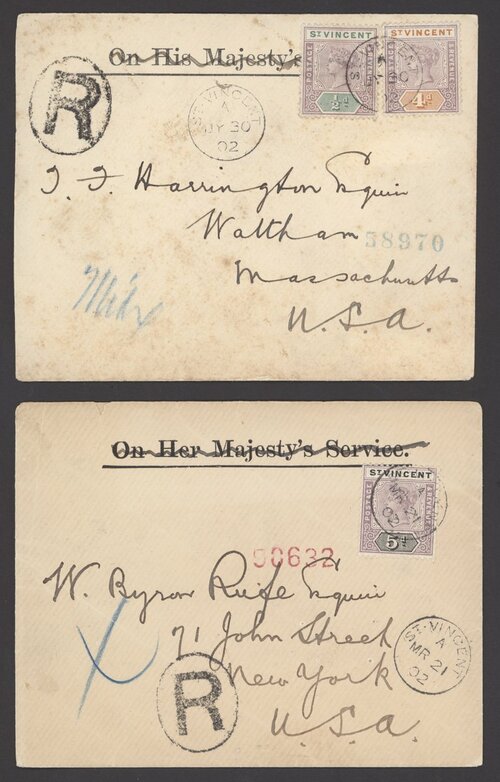 On His Majesty's
ST VINCENT
POSTAGE
REVENUE
½d
ST VINCENT
POSTAGE
REVENUE
4d
R
ST. VINCENT
A
JY 30
02
T. F. Harrington Esquire
Waltham
58970
Massachusetts
U.S.A.
On Her Majesty's Service.
ST VINCENT
POSTAGE
REVENUE
5d
A
MR 21
02
90632
W. Byron Esquire
71 John Street
New York
U.S.A.
R
ST. VINCENT
A
MR 21
02